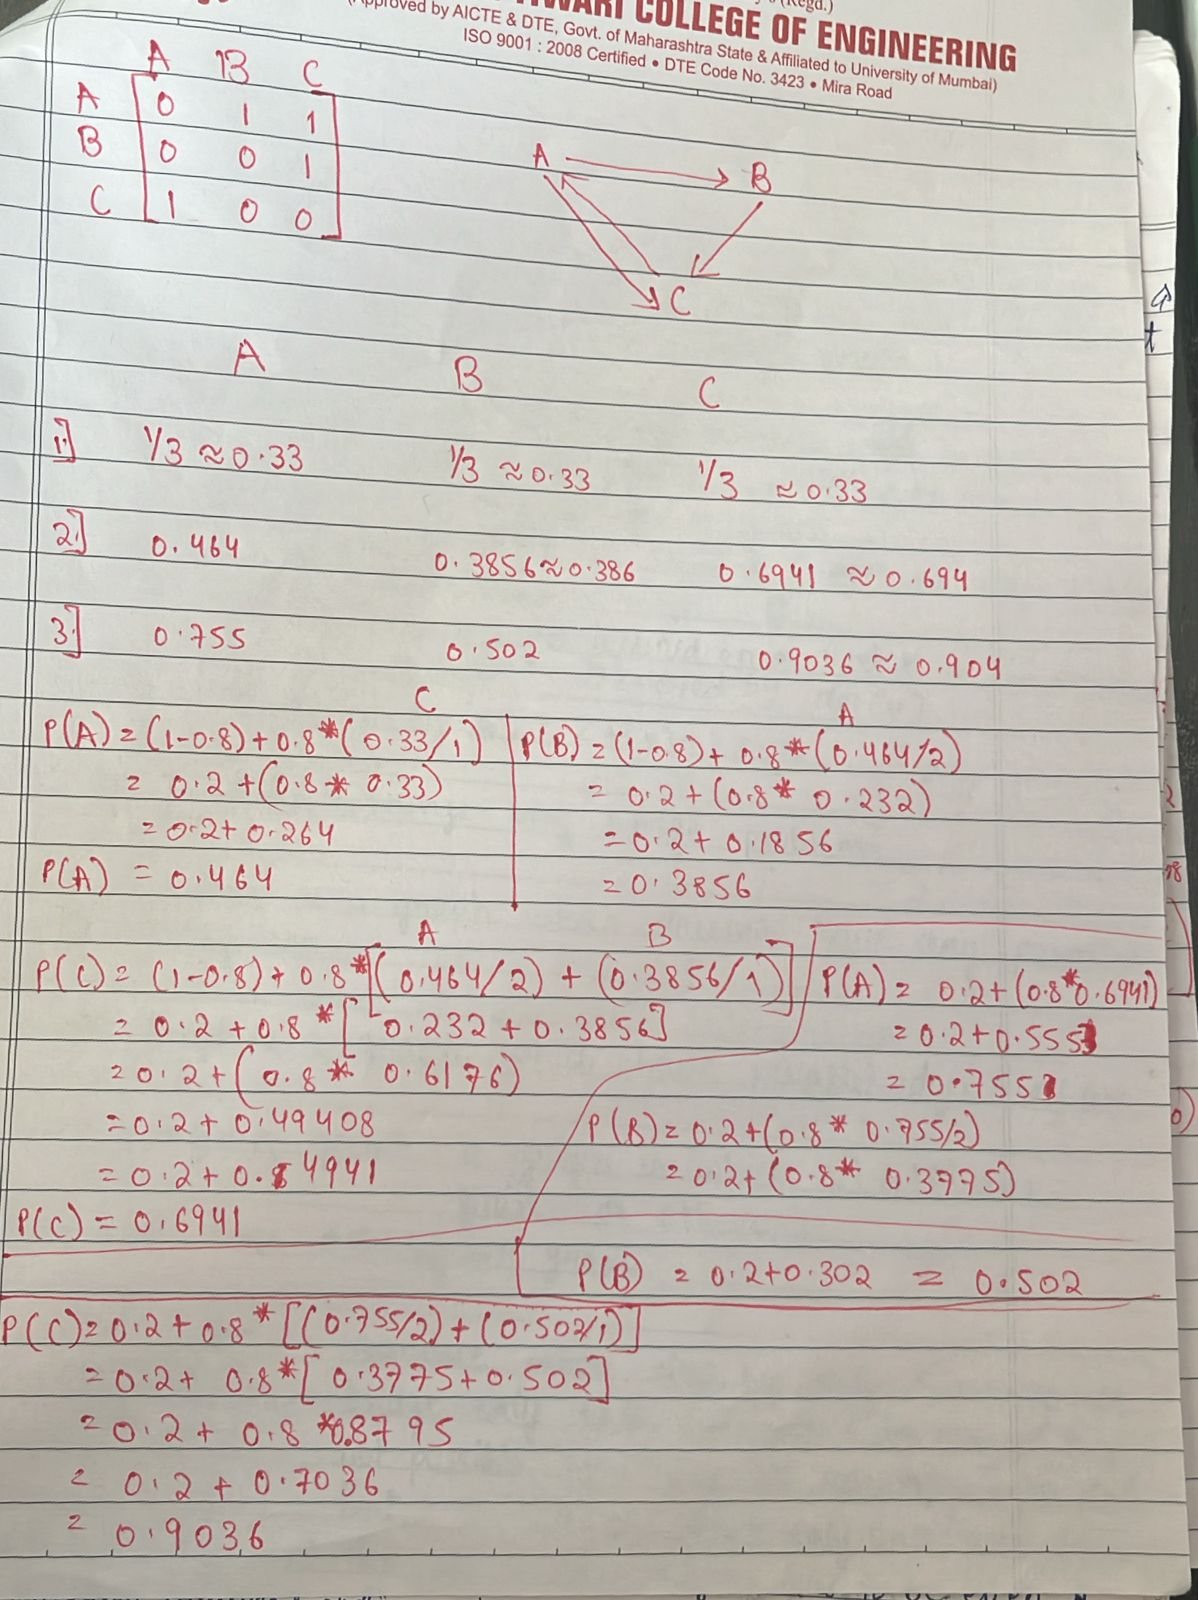 (Regd.)
COLLEGE OF ENGINEERING
by AICTE & DTE, Govt. of Maharashtra State & Affiliated to University of Mumbai)
ISO 9001 : 2008 Certified • DTE Code No. 3423 • Mira Road
A B C
A 0 1 1
B 0 0 1
C 1 0 0
A B
C
A B C
1.] 1/3 ≈ 0.33 1/3 ≈ 0.33 1/3 ≈ 0.33
2.] 0.464 0.3856 ≈ 0.386 0.6941 ≈ 0.694
3.] 0.755 0.502 0.9036 ≈ 0.904
C
P(A) = (1-0.8) + 0.8 * (0.33/1)
= 0.2 + (0.8 * 0.33)
= 0.2 + 0.264
P(A) = 0.464
A
P(B) = (1-0.8) + 0.8 * (0.464/2)
= 0.2 + (0.8 * 0.232)
= 0.2 + 0.1856
= 0.3856
A B
P(C) = (1-0.8) + 0.8 * [(0.464/2) + (0.3856/1)]
= 0.2 + 0.8 * [0.232 + 0.3856]
= 0.2 + (0.8 * 0.6176)
= 0.2 + 0.49408
= 0.2 + 0.4941
P(C) = 0.6941
P(A) = 0.2 + (0.8 * 0.6941)
= 0.2 + 0.555
= 0.755
P(B) = 0.2 + (0.8 * 0.755/2)
= 0.2 + (0.8 * 0.3775)
P(B) = 0.2 + 0.302 = 0.502
P(C) = 0.2 + 0.8 * [(0.755/2) + (0.502/1)]
= 0.2 + 0.8 * [0.3775 + 0.502]
= 0.2 + 0.8 * 0.8795
= 0.2 + 0.7036
= 0.9036